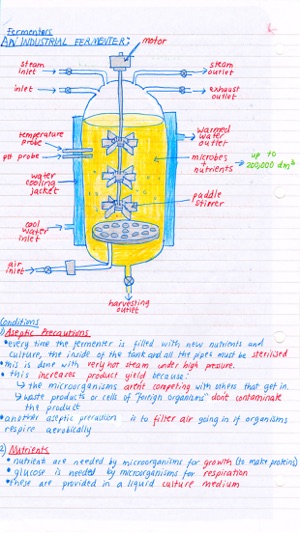 Fermentors
AN INDUSTRIAL FERMENTER:
motor
steam inlet
steam outlet
inlet
exhaust outlet
temperature probe
pH probe
warmed water outlet
microbes + nutrients
up to 200,000 dm³
water cooling jacket
paddle stirrer
cool water inlet
air inlet
harvesting outlet
Conditions
1) Aseptic Precautions
• every time the fermenter is filled with new nutrients and
culture, the inside of the tank and all the pipes must be sterilised
• this is done with very hot steam under high pressure.
• this increases product yield because:
↳ the microorganisms aren't competing with others that get in.
↳ waste products or cells of "foreign organisms" don't contaminate
the product
• another aseptic precaution is to filter air going in if organisms
respire aerobically
2) Nutrients
• nutrient are needed by microorganisms for growth (to make proteins)
• glucose is needed by microorganisms for respiration
• these are provided in a liquid culture medium